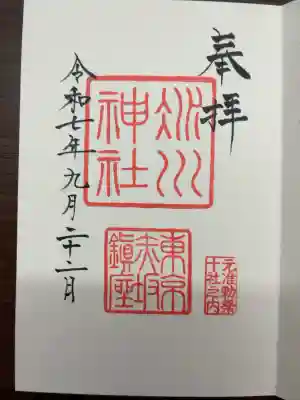 奉拝
氷川神社
東京赤坂鎮座
元准勅祭十社之内
令和七年九月二十二月